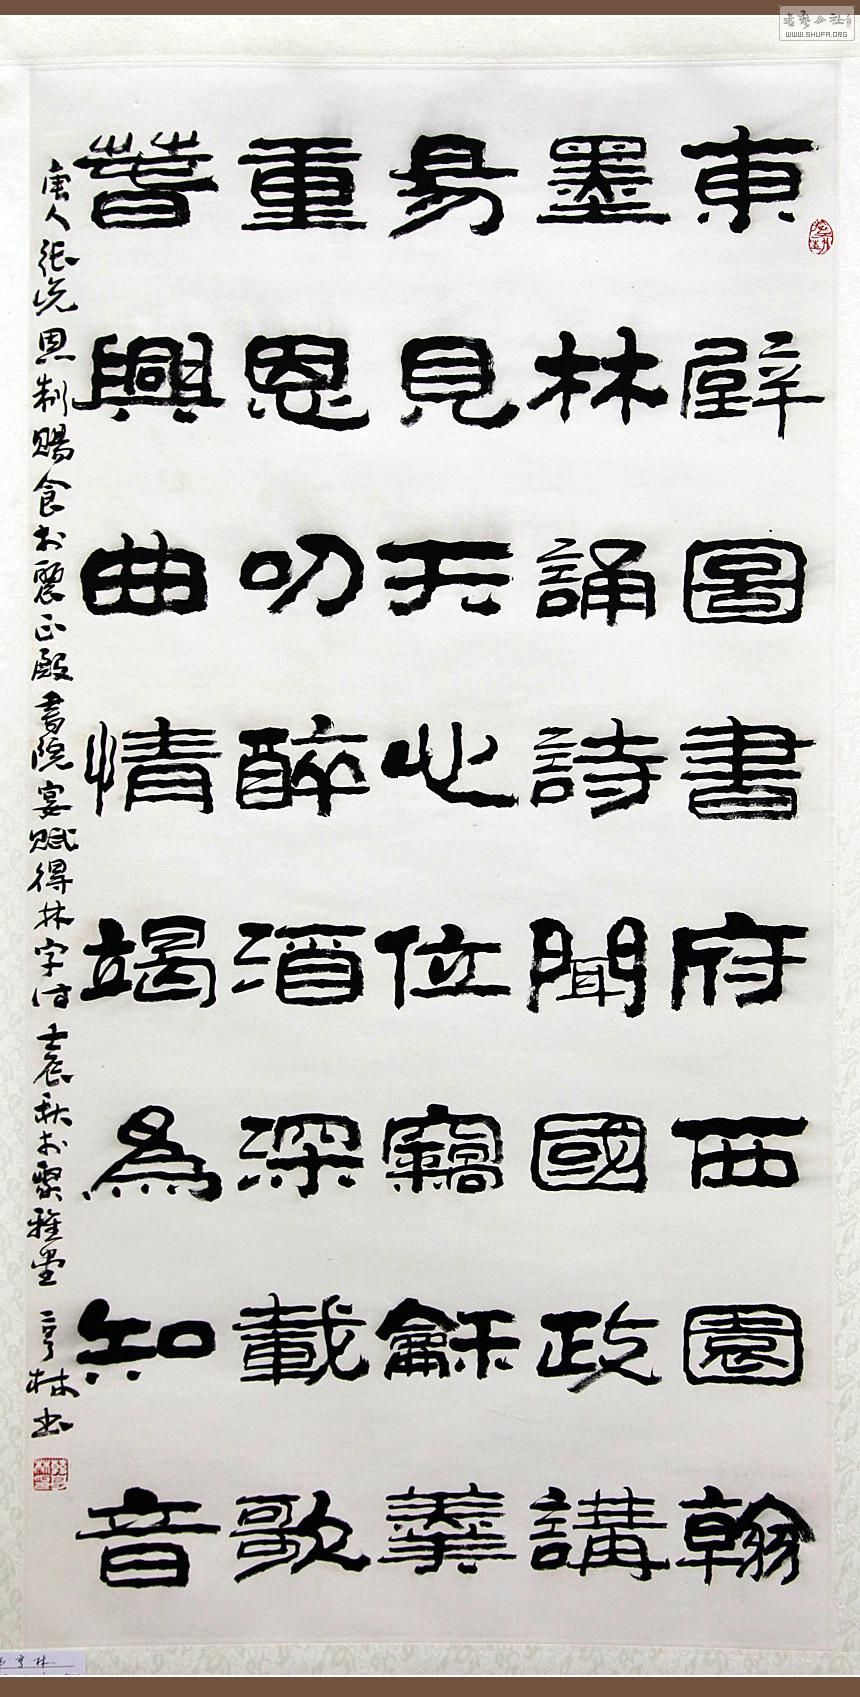 東壁圖書府西園翰
墨林誦詩聞國政講
易見天心位竊龢羹
重恩叨醉酒深載歌
春興曲情竭為知音
唐人張説恩制賜食於麗正殿書院宴賦得林字詩 壬辰秋於聚雅堂 亨林書
书艺公社
WWW.SHUFA.ORG
亨林